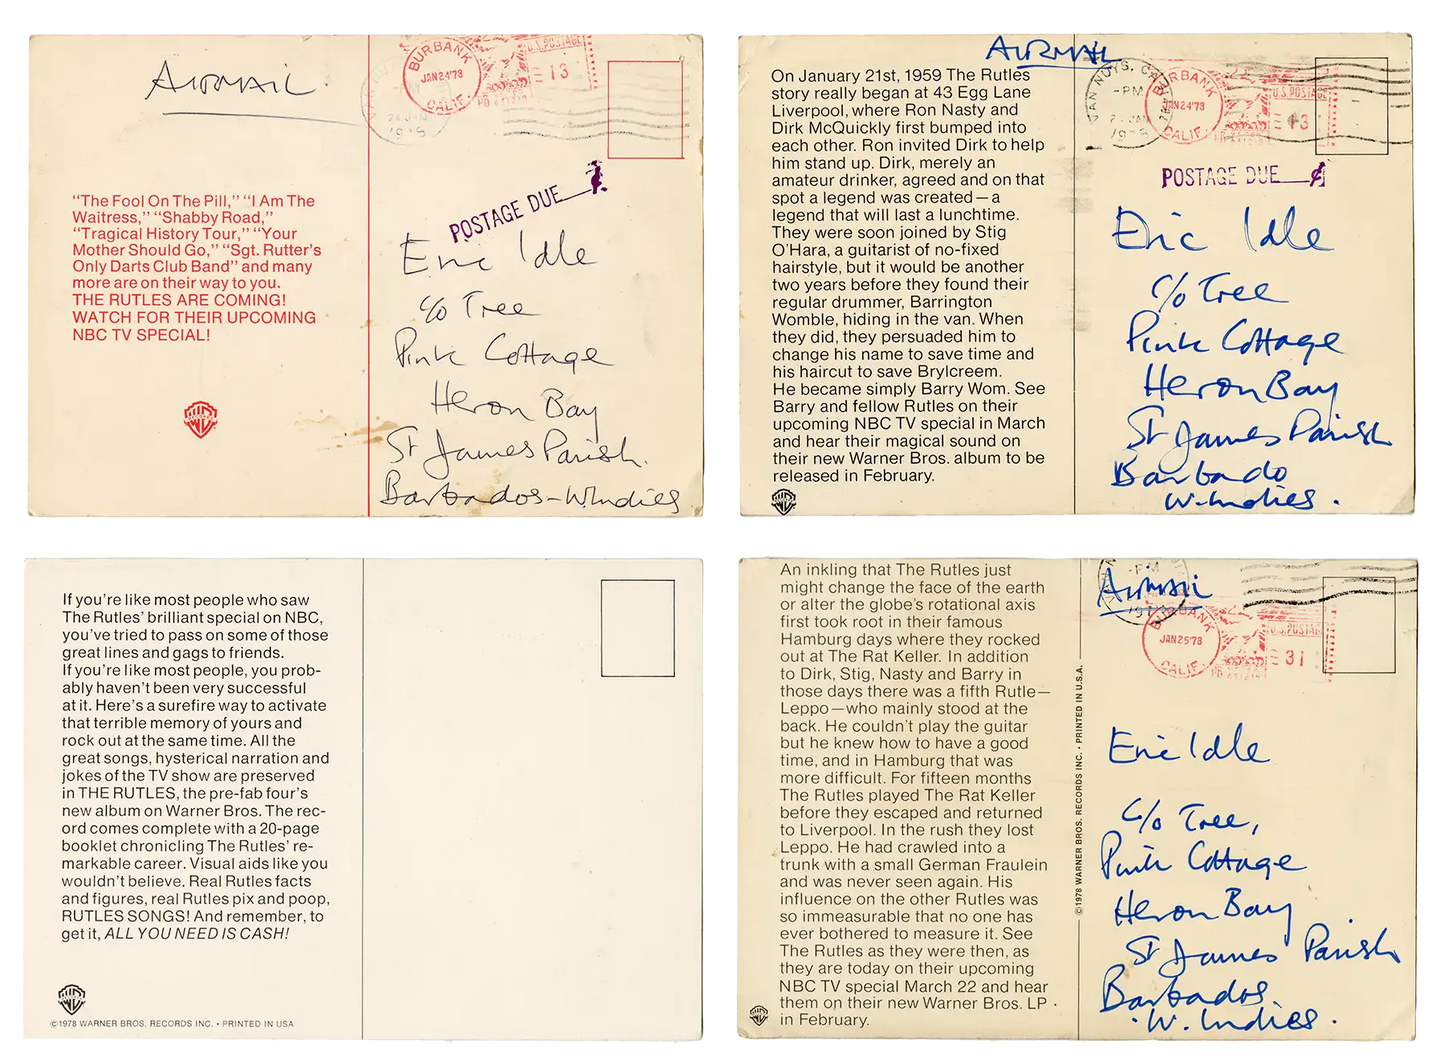 AIRMAIL.
BURBANK
JAN24'78
CALIF.
U.S. POSTAGE
13
"The Fool On The Pill," "I Am The
Waitress," "Shabby Road,"
"Tragical History Tour," "Your
Mother Should Go," "Sgt. Rutter's
Only Darts Club Band" and many
more are on their way to you.
THE RUTLES ARE COMING!
WATCH FOR THEIR UPCOMING
NBC TV SPECIAL!
POSTAGE DUE
Eric Idle
c/o Tree
Pink Cottage
Heron Bay
St James Parish.
Barbados - W.Indies
AIRMAIL
On January 21st, 1959 The Rutles
story really began at 43 Egg Lane
Liverpool, where Ron Nasty and
Dirk McQuickly first bumped into
each other. Ron invited Dirk to help
him stand up. Dirk, merely an
amateur drinker, agreed and on that
spot a legend was created—a
legend that will last a lunchtime.
They were soon joined by Stig
O'Hara, a guitarist of no-fixed
hairstyle, but it would be another
two years before they found their
regular drummer, Barrington
Womble, hiding in the van. When
they did, they persuaded him to
change his name to save time and
his haircut to save Brylcreem.
He became simply Barry Wom. See
Barry and fellow Rutles on their
upcoming NBC TV special in March
and hear their magical sound on
their new Warner Bros. album to be
released in February.
VAN NUYS, CA
PM
BURBANK
JAN24'78
CALIF.
U.S. POSTAGE
13
POSTAGE DUE ¢
Eric Idle
c/o Tree
Pink Cottage
Heron Bay
St James Parish
Barbado
W. Indies.
If you're like most people who saw
The Rutles' brilliant special on NBC,
you've tried to pass on some of those
great lines and gags to friends.
If you're like most people, you prob-
ably haven't been very successful
at it. Here's a surefire way to activate
that terrible memory of yours and
rock out at the same time. All the
great songs, hysterical narration and
jokes of the TV show are preserved
in THE RUTLES, the pre-fab four's
new album on Warner Bros. The rec-
ord comes complete with a 20-page
booklet chronicling The Rutles' re-
markable career. Visual aids like you
wouldn't believe. Real Rutles facts
and figures, real Rutles pix and poop,
RUTLES SONGS! And remember, to
get it, ALL YOU NEED IS CASH!
©1978 WARNER BROS. RECORDS INC. • PRINTED IN USA
An inkling that The Rutles just
might change the face of the earth
or alter the globe's rotational axis
first took root in their famous
Hamburg days where they rocked
out at The Rat Keller. In addition
to Dirk, Stig, Nasty and Barry in
those days there was a fifth Rutle—
Leppo—who mainly stood at the
back. He couldn't play the guitar
but he knew how to have a good
time, and in Hamburg that was
more difficult. For fifteen months
The Rutles played The Rat Keller
before they escaped and returned
to Liverpool. In the rush they lost
Leppo. He had crawled into a
trunk with a small German Fraulein
and was never seen again. His
influence on the other Rutles was
so immeasurable that no one has
ever bothered to measure it. See
The Rutles as they were then, as
they are today on their upcoming
NBC TV special March 22 and hear
them on their new Warner Bros. LP ·
in February.
©1978 WARNER BROS. RECORDS INC. • PRINTED IN U.S.A.
PM
AIRMAIL
BURBANK
JAN25'78
CALIF.
U.S. POSTAGE
31
Eric Idle
c/o Tree,
Pink Cottage
Heron Bay
St James Parish
Barbados.
W. Indies.